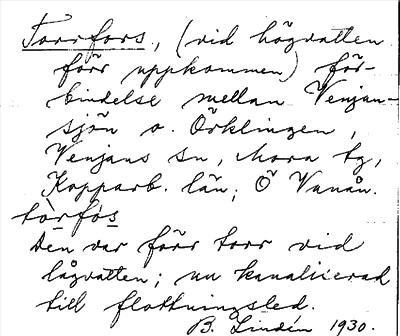 Torrfors, (vid högvatten
förr uppkommen) för-
bindelse mellan Venjan-
sjön o. Örklingen,
Venjans sn, Mora tg,
Kopparb. län; Ö Vanån.
tòrfós
Den var förr torr vid
lågvatten; nu kanaliserad
till flottningsled.
B. Lindén 1930.